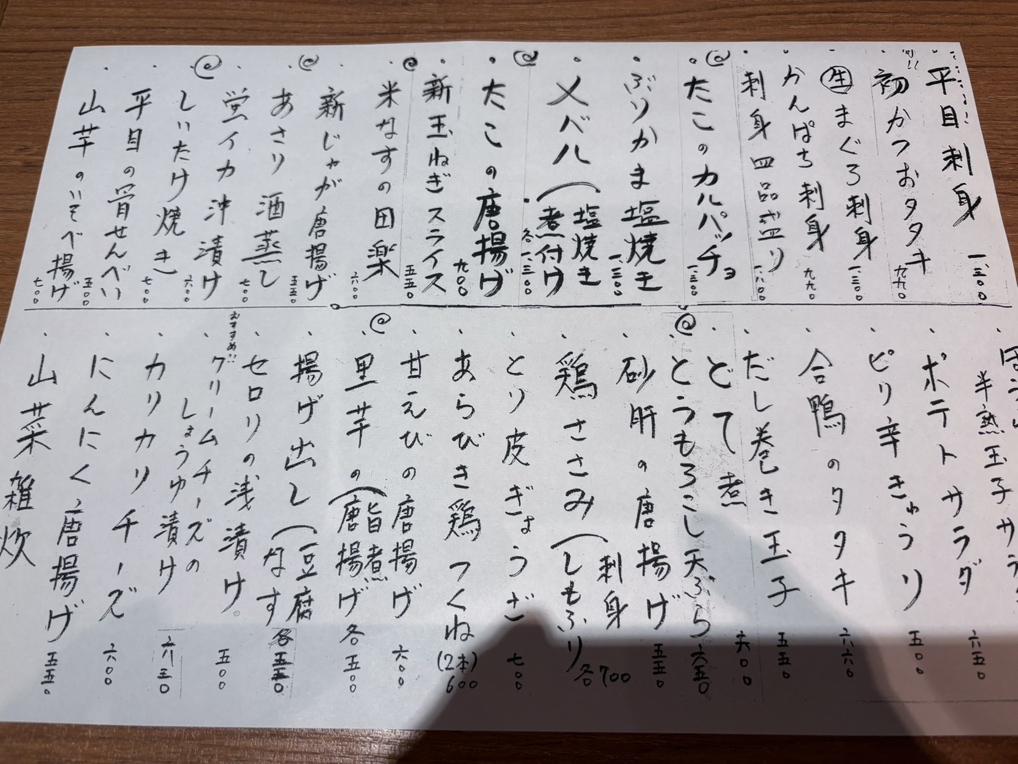 平目刺身 一、三〇〇
初かつおタタキ 九九〇
生まぐろ刺身 一、三〇〇
かんぱち刺身 九九〇
刺身四品盛り 一、六〇〇
たこのカルパッチョ 一、三〇〇
ぶりかま塩焼き 一、三〇〇
メバル(塩焼き 煮付け 各一、三〇〇
たこの唐揚げ 九〇〇
新玉ねぎスライス 五五〇
米なすの田楽 六〇〇
新じゃが唐揚げ 五五〇
あさり酒蒸し 七〇〇
蛍イカ沖漬け 六〇〇
しいたけ焼き 七〇〇
平目の骨せんべい 五〇〇
山芋のいそべ揚げ 七〇〇
半熟玉子サラダ
ポテトサラダ 六五〇
ピリ辛きゅうり 五〇〇
合鴨のタタキ 六六〇
だし巻き玉子 五五〇
どて煮 六〇〇
とうもろこし天ぷら 六五〇
砂肝の唐揚げ 五五〇
鶏ささみ(刺身 しもふり 各700
とり皮ぎょうざ 七〇〇
あらびき鶏つくね(2本) 600
甘えびの唐揚げ 六〇〇
里芋の(旨煮 唐揚げ 各五〇〇
揚げ出し(豆腐 なす 各五五〇
セロリの浅漬け。 五〇〇
おすすめ!!
クリームチーズのしょうゆ漬け 六八三〇
カリカリチーズ 六〇〇
にんにく唐揚げ 五五〇
山菜雑炊